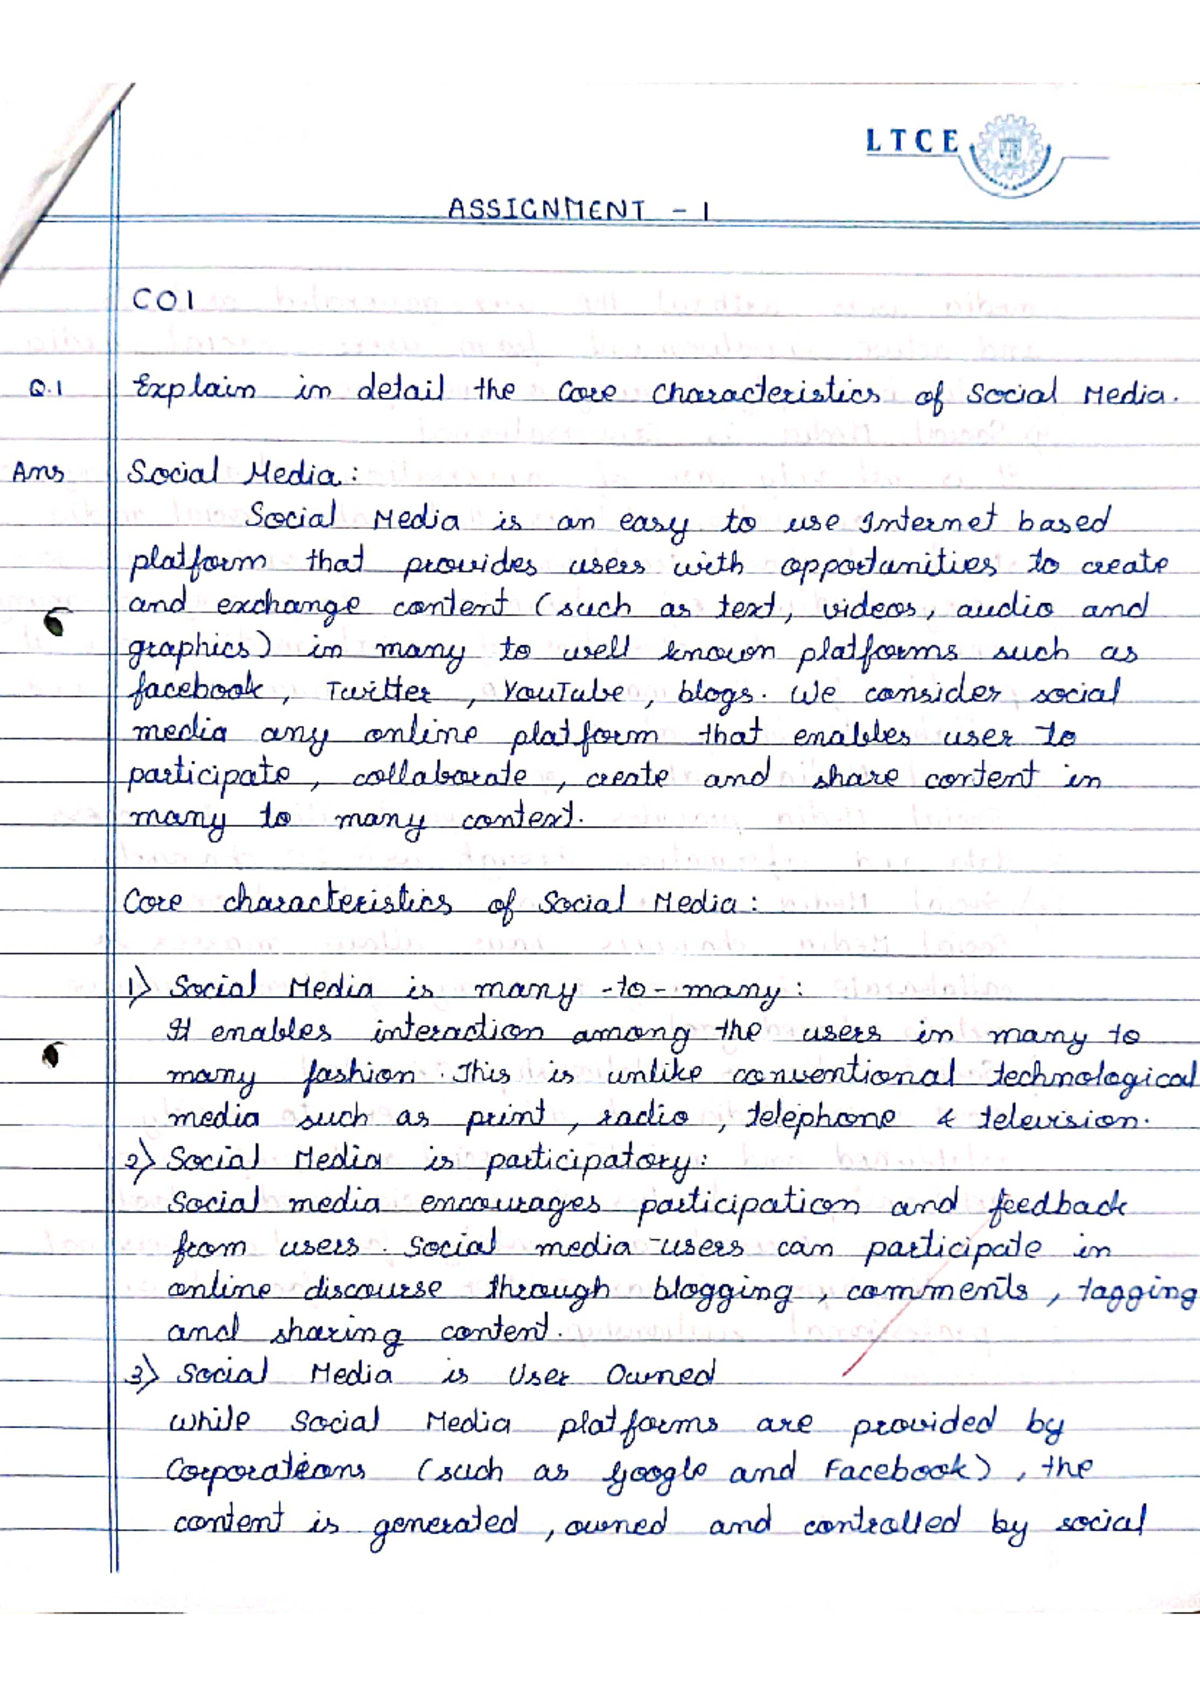 LTCE
ASSIGNMENT - 1
CO1
Q.1 Explain in detail the Core Characteristics of Social Media.
Ans Social Media:
Social Media is an easy to use Internet based
platform that provides users with opportunities to create
and exchange content (such as text, videos, audio and
graphics) in many to well known platforms such as
facebook, Twitter, YouTube, blogs. We consider social
media any online platform that enables user to
participate, collaborate, create and share content in
many to many context.
Core characteristics of Social Media:
1) Social Media is many-to-many:
It enables interaction among the users in many to
many fashion. This is unlike conventional technological
media such as print, radio, telephone & television.
2) Social Media is participatory:
Social media encourages participation and feedback
from users. Social media users can participate in
online discourse through blogging, comments, tagging
and sharing content.
3) Social Media is User Owned
While Social Media platforms are provided by
Corporations (such as Google and Facebook), the
content is generated, owned and controlled by social